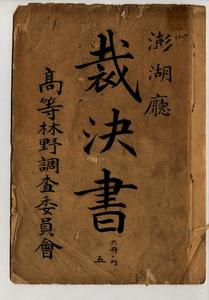 澎湖廳
裁決書
六冊ノ内
五
高等林野調查委員會